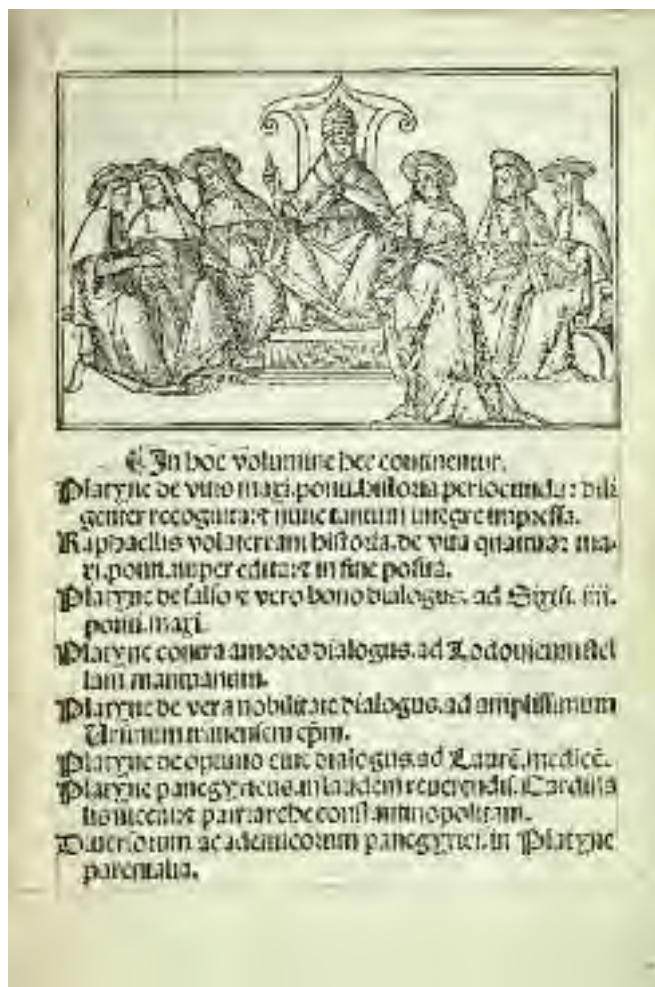 In hoc volumine hec continentur.
Platyne de vitis maxi. ponti. historia periocunda: dili
genter recognita: et nunc tantum integre impressa.
Raphaelis volaterrani historia. de vita quattuor ma-
xi. ponti. nuper edita: et in fine posita.
Platyne de falso et vero bono dialogus. ad Sixtū. iiii.
ponti. maxi.
Platyne contra amores dialogus. ad Lodovicum stel
lam mantuanum.
Platyne de vera nobilitate dialogus. ad amplissimum
Ursinum tranensem ep̄m.
Platyne de optimo cive dialogus. ad Laurē. medicē.
Platyne panegyricus. in laudem reverendis. Cardina
lis niceni: et patriarche constantinopolitani.
Diversorum academicorum panegyrici. in Platyne
parentalia.